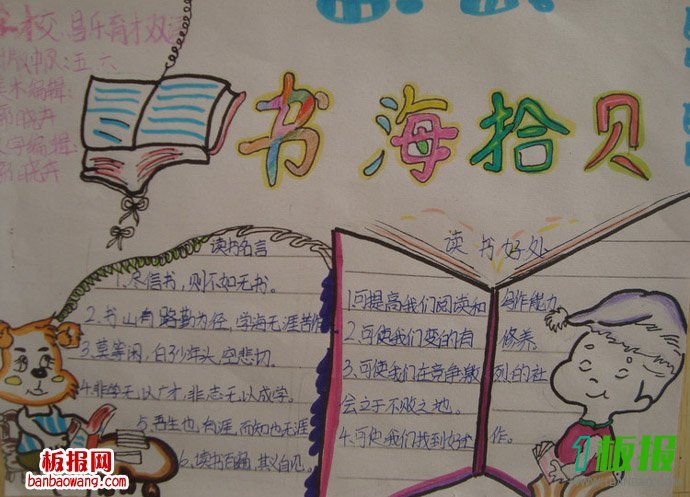 校:昌乐育才双
版中队:五、六
术编辑:
晓卉
字编辑:
晓卉
书海拾贝
读书名言
1.尽信书,则不如无书。
2.书山有路勤为径,学海无涯苦作
3.莫等闲,白了少年头,空悲切。
4.非学无以广才,非志无以成学。
5.吾生也有涯,而知也无涯
6.读书百遍,其义自见。
读书好处
1.可提高我们阅读和写作能力
2.可使我们变的有修养。
3.可使我们在竞争激烈的社
会立于不败之地。
4.可使我们找到好工作。
板报网
banbaowang.com
1板报